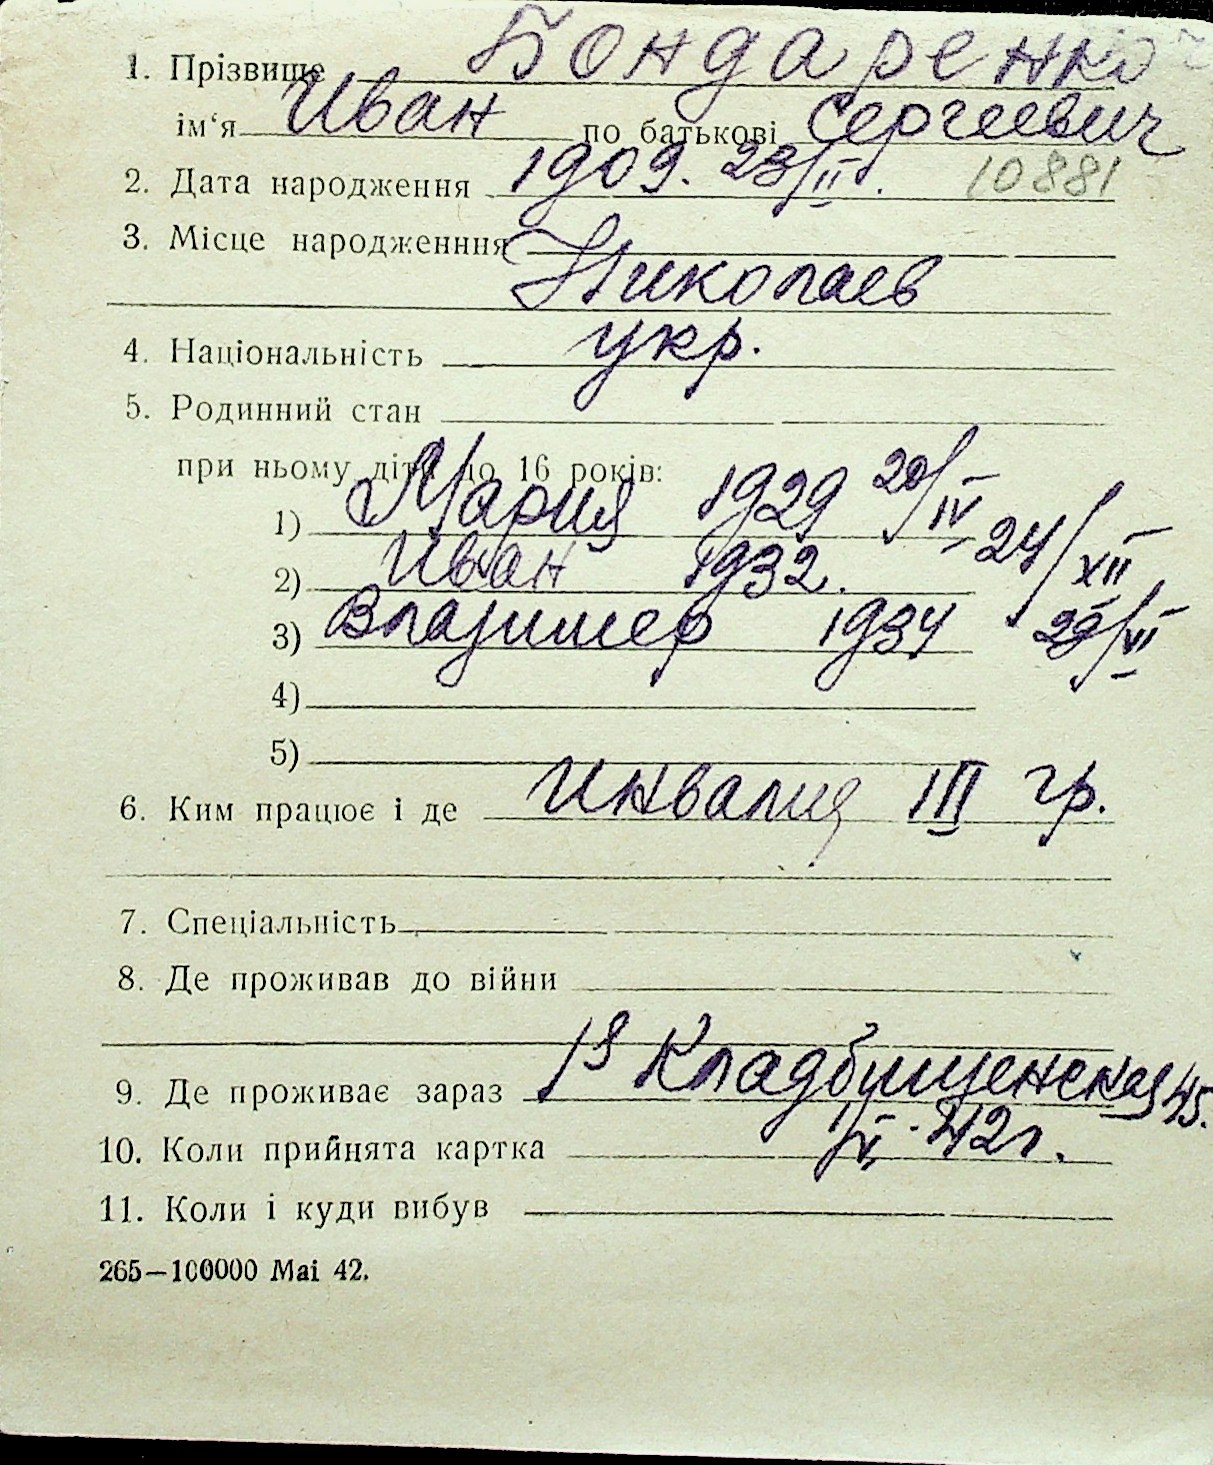 1. Прізвище Бондаренко
ім'я Иван по батькові Сергеевич
2. Дата народження 1909. 23/II. 10881
3. Місце народженння
Николаев
4. Національність укр.
5. Родинний стан
при ньому діти до 16 років:
1) Мария 1929 20/IV
2) Иван 1932. 24/XII
3) Владимер 1934 29/VI
4)
5)
6. Ким працює і де Инвалид III гр.
7. Спеціальність
8. Де проживав до війни
9. Де проживає зараз Кладбищенская 45.
10. Коли прийнята картка 42г.
11. Коли і куди вибув
265—100000 Mai 42.